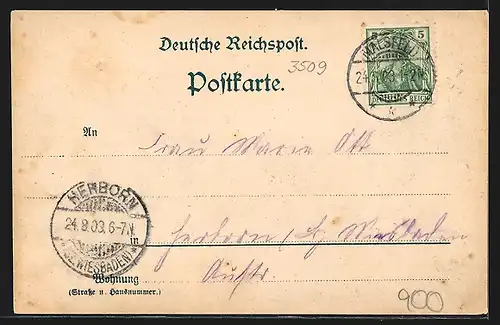 Deutsche Reichspost.
Postkarte.
3509
5 5
MALSFELD
24. 9. 03.
DEUTSCHES REICH
An
Frau Marie Ott
HERBORN
24.9.03.6-7N.
(BZ. WIESBADEN)
in
Herborn, Bz Wiesbaden
Wohnung
(Straße u. Hausnummer.)
900